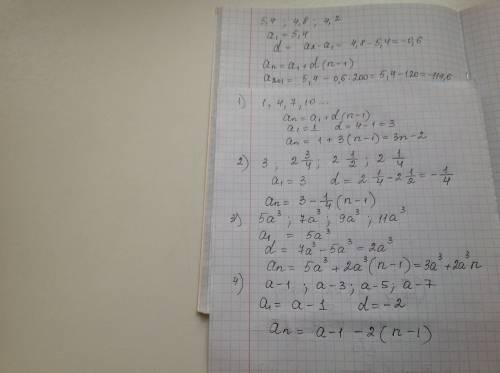 5,4 ; 4,8 ; 4,2
a₁ = 5,4
d = a₂ - a₁ = 4,8 - 5,4 = -0,6
aₙ = a₁ + d(n-1)
a₂₀₁ = 5,4 - 0,6·200 = 5,4 - 120 = -114,6
1) 1, 4, 7, 10 ...
aₙ = a₁ + d(n-1)
a₁ = 1 d = 4-1 = 3
aₙ = 1 + 3(n-1) = 3n-2
2) 3 ; 2 3/4 ; 2 1/2 ; 2 1/4
a₁ = 3 d = 2 1/4 - 2 1/2 = -1/4
aₙ = 3 - 1/4 (n-1)
3) 5a³ ; 7a³ ; 9a³ ; 11a³
a₁ = 5a³
d = 7a³ - 5a³ = 2a³
aₙ = 5a³ + 2a³(n-1) = 3a³ + 2a³n
4) a-1 ; a-3 ; a-5 ; a-7
a₁ = a-1 d = -2
aₙ = a-1 -2(n-1)